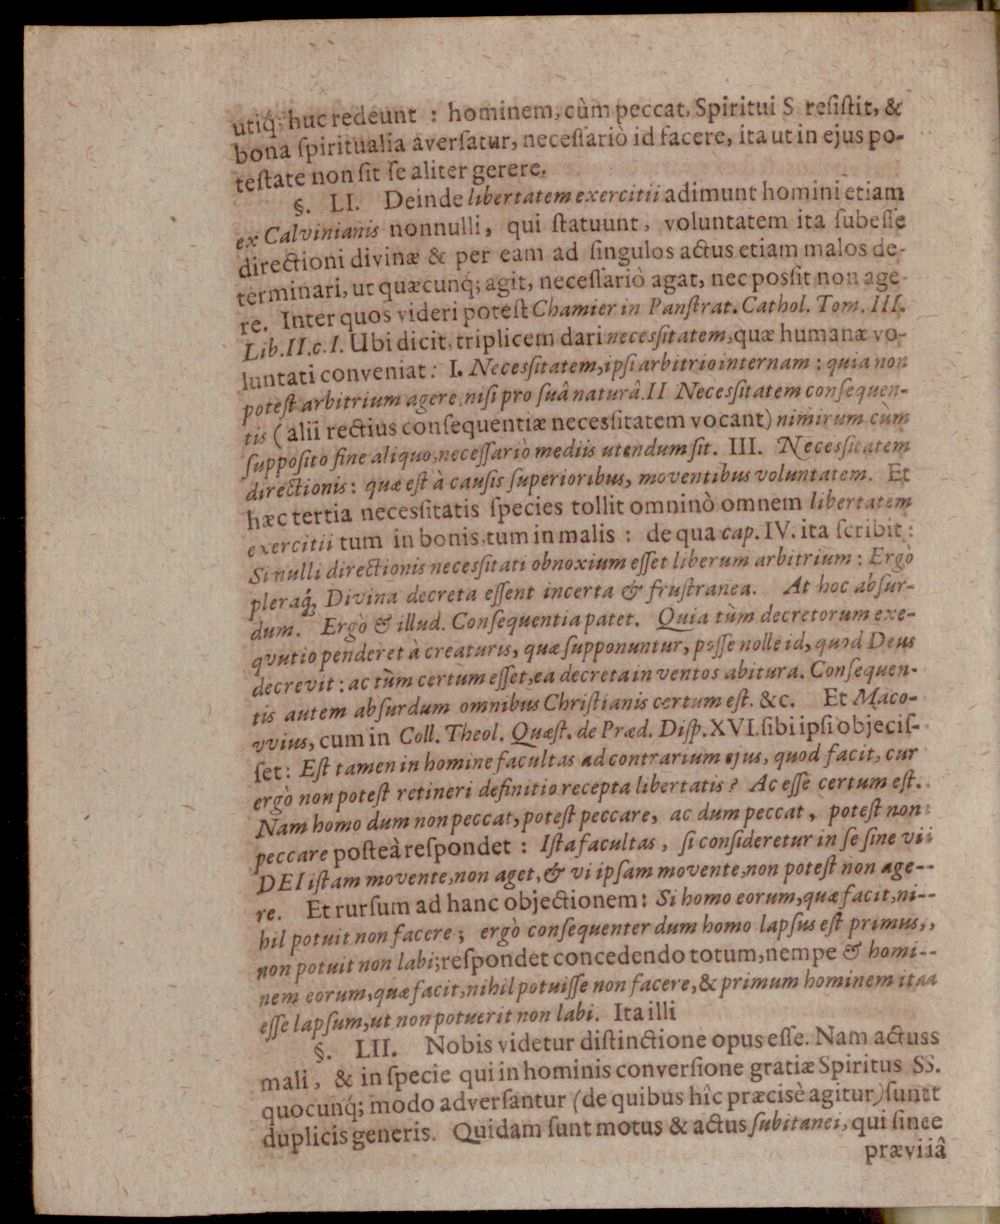 utiq́; huc redeunt : hominem, cùm peccat, Spiritui S resistit, &
bona spiritualia aversatur, necessariò id facere, ita ut in ejus po-
testate non sit se aliter gerere.
§. LI. Deinde libertatem exercitii adimunt homini etiam
ex Calvinianis nonnulli, qui statuunt, voluntatem ita subesse
directioni divinæ & per eam ad singulos actus etiam malos de-
terminari, ut quæcunq́; agit, necessariò agat, nec possit non age-
re. Inter quos videri potest Chamier in Panstrat. Cathol. Tom. III.
Lib. II. c. I. Ubi dicit, triplicem dari necessitatem, quæ humanæ vo-
luntati conveniat: I. Necessitatem, ipsi arbitrio internam : quia non
potest arbitrium agere, nisi pro suâ naturâ. II Necessitatem consequen-
tis (alii rectius consequentiæ necessitatem vocant) nimirum cùm
supposito fine aliquo, necessariò mediis utendum sit. III. Necessitatem
directionis: quæ est à causis superioribus, moventibus voluntatem. Et
hæc tertia necessitatis species tollit omninò omnem libertatem
exercitii tum in bonis, tum in malis : de qua cap. IV. ita scribit :
Si nulli directionis necessitati obnoxium esset liberum arbitrium : Ergò
pleraq́; Divina decreta essent incerta & frustranea. At hoc absur-
dum. Ergò & illud. Consequentia patet. Quia tùm decretorum exe-
qvutio penderet à creaturis, quæ supponuntur, posse nolle id, quod Deus
decrevit : ac tùm certum esset, ea decreta in ventos abitura. Consequen-
tis autem absurdum omnibus Christianis certum est. &c. Et Maco-
vvius, cum in Coll. Theol. Quæst. de Præd. Disp. XVI. sibi ipsi objecis-
set: Est tamen in homine facultas ad contrarium ejus, quod facit, cur
ergò non potest retineri definitio recepta libertatis? Ac esse certum est.
Nam homo dum non peccat, potest peccare, ac dum peccat, potest non
peccare posteà respondet : Ista facultas, si consideretur in se sine vi
DEI istam movente, non aget, & vi ipsam movente, non potest non age--
re. Et rursum ad hanc objectionem: Si homo eorum, quæ facit, ni--
hil potuit non facere; ergò consequenter dum homo lapsus est primus,
non potuit non labi; respondet concedendo totum, nempe & homi--
nem eorum, quæ facit, nihil potuisse non facere, & primum hominem itaa
esse lapsum, ut non potuerit non labi. Ita illi
§. LII. Nobis videtur distinctione opus esse. Nam actuss
mali, & in specie qui in hominis conversione gratiæ Spiritus SS.
quocunq́; modo adversantur (de quibus hîc præcisè agitur) suntt
duplicis generis. Quidam sunt motus & actus subitanei, qui sinee
præviiâ